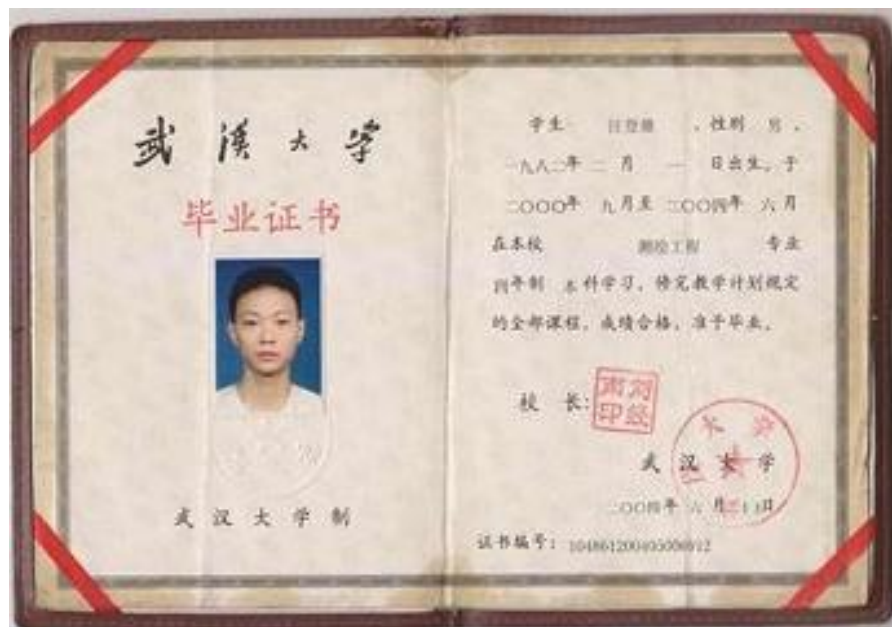 武漢大学
毕业证书
武汉大学制
学生 ，性别 男，
一九八二年 二月 一 日出生，于
二〇〇〇年 九月至 二〇〇四年 六月
在本校 测绘工程 专业
四年制 本科学习，修完教学计划规定
的全部课程，成绩合格，准予毕业。
校 长：
武汉大学
二〇〇四年 六月三十日
证书编号：